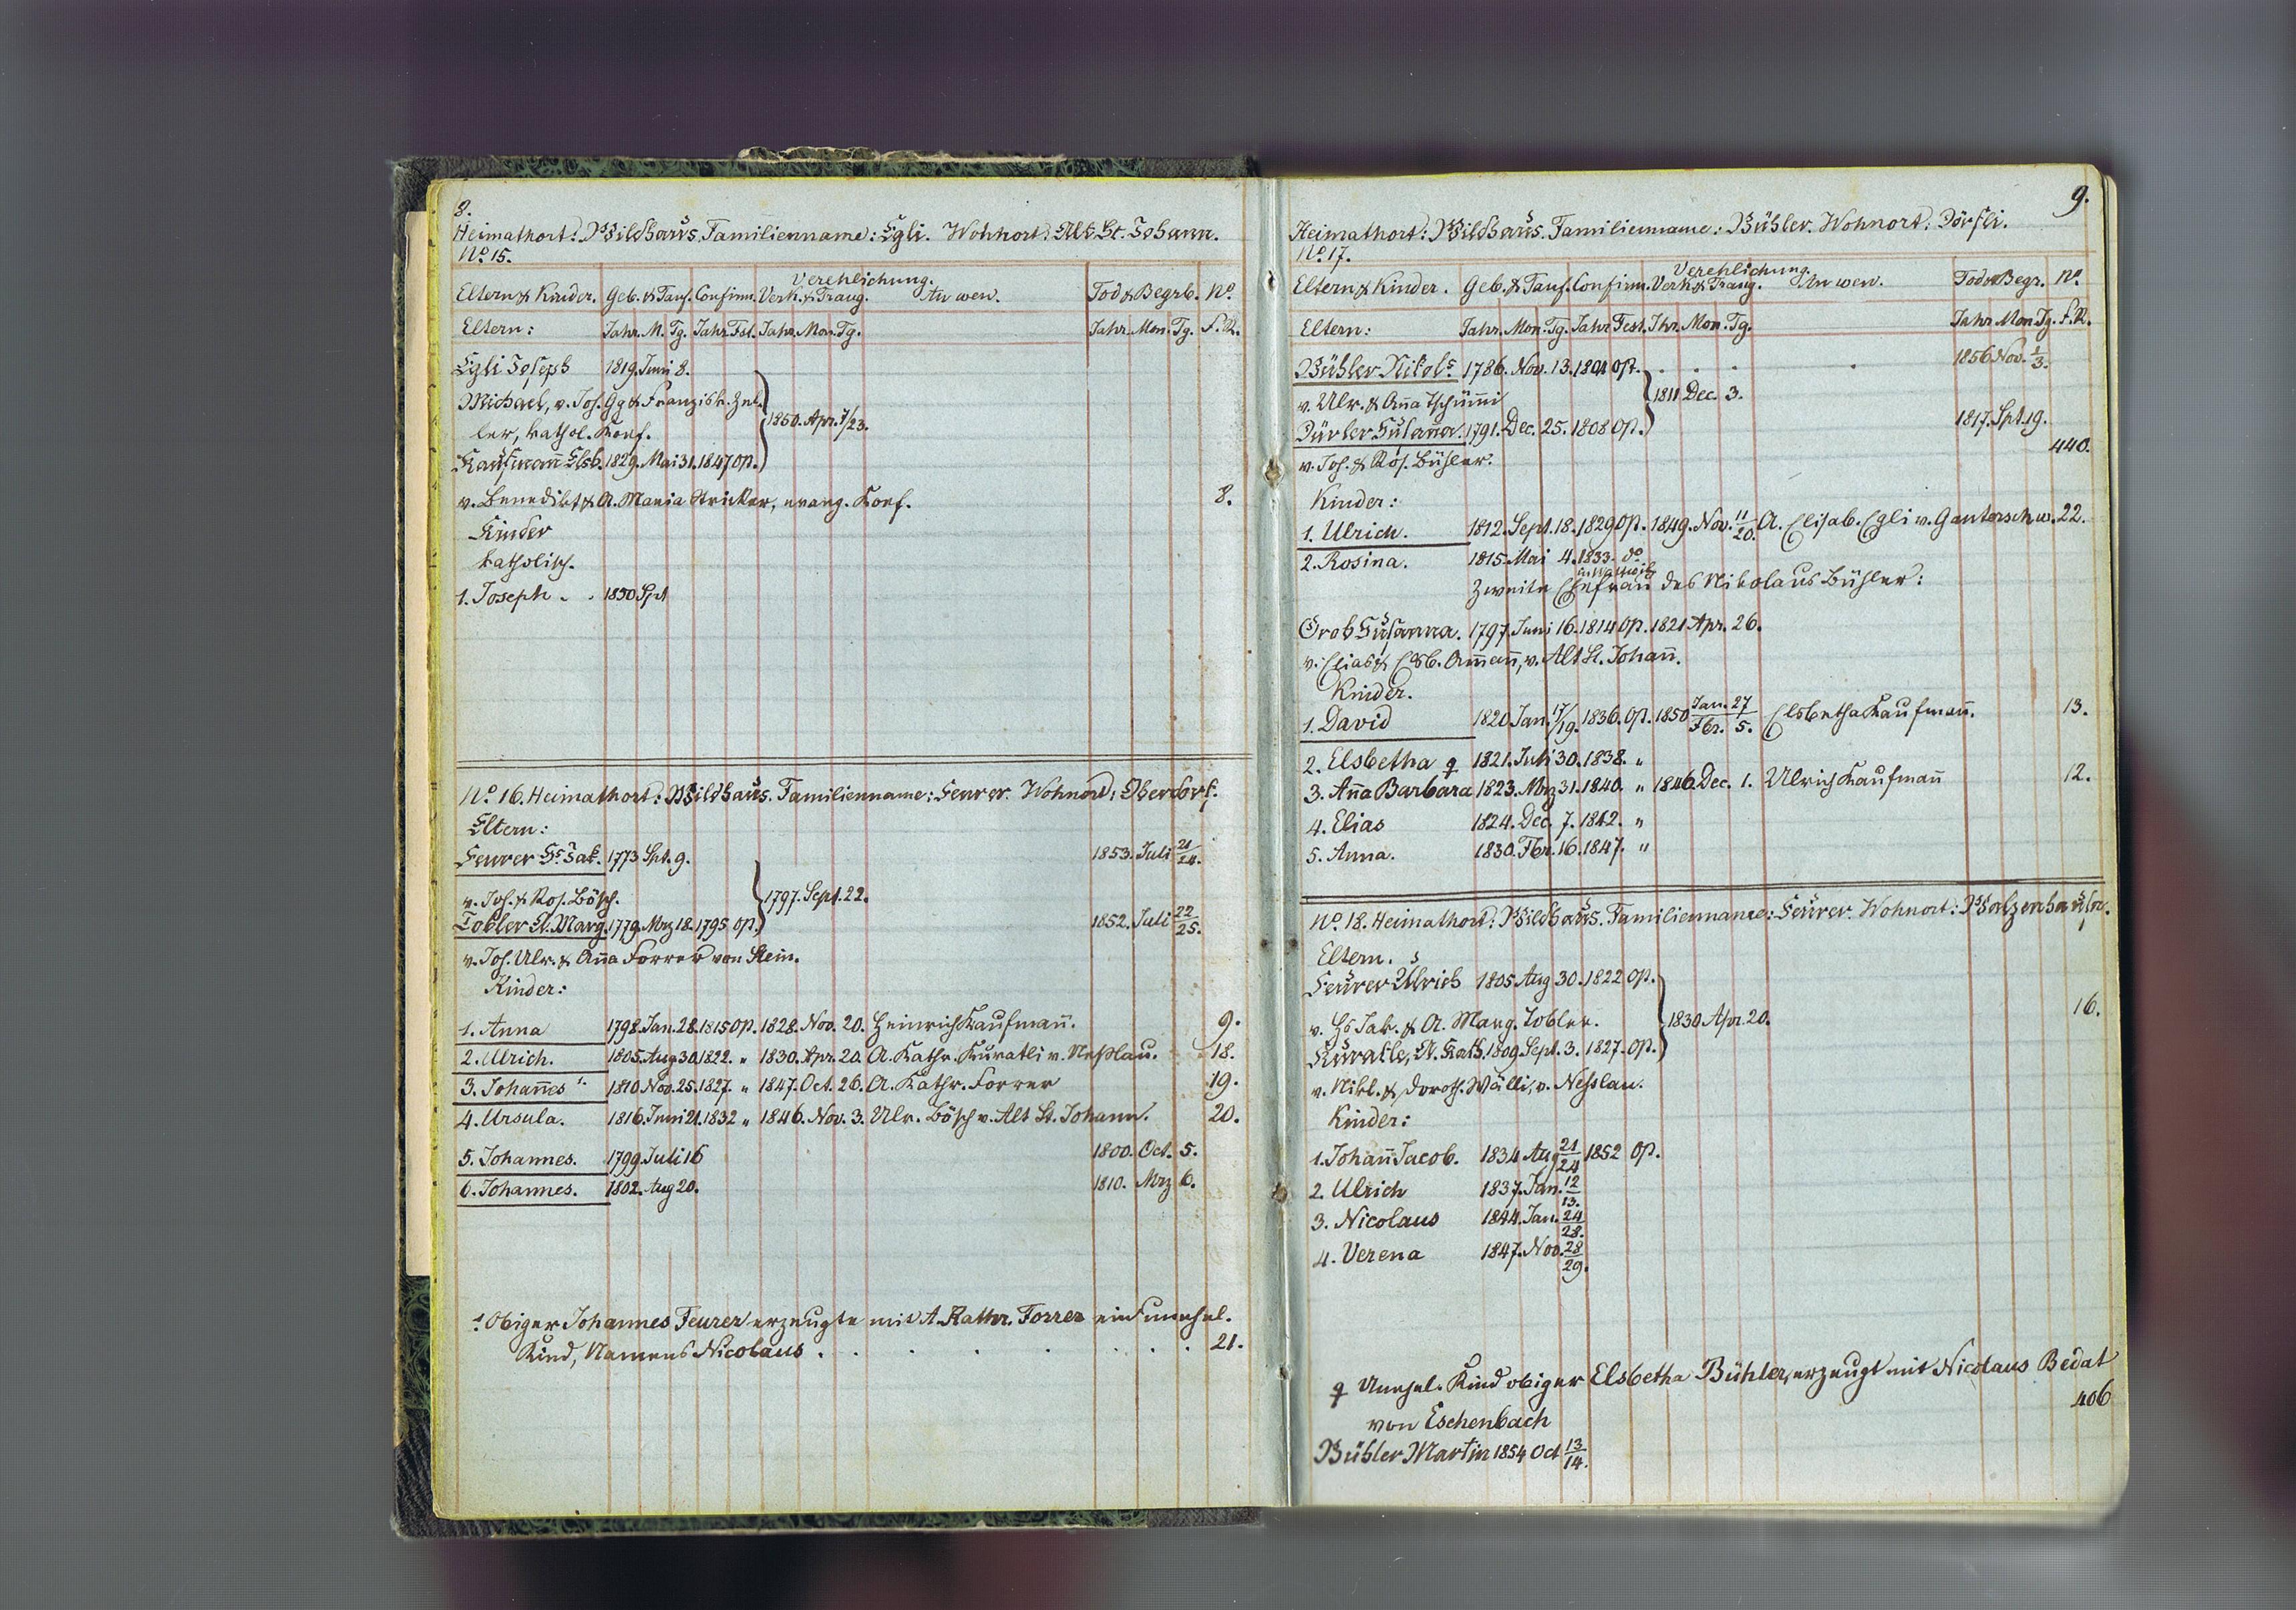 8.
Heimathort: Wildhaus. Familienname: Egli. Wohnort: Alt St. Johann.
No. 15.
Verehlichung.
Eltern & Kinder. Geb. & Tauf. Confirm. Verk. & Traug. An wen. Tod & Begrb. No.
Eltern: Jahr. M. Tg. Jahr Fst. Jahr. Mon. Tg. Jahr. Mon. Tg. F. R.
Egli Joseph 1819. Juni 8.
Michael, v. Jos. Gg & Franzisk. Zel-
ler, kathol. Konf. 1850. Apr. 7/23.
Kaufmann̄ Elsb. 1829. Mai 31. 1847 Op.
v. Benedikt & A. Maria Stricker, evang. Konf. 8.
Kinder
katholisch.
1. Joseph . . 1850 Spt
No. 16. Heimathort: Wildhaus. Familienname: Feurer. Wohnort: Oberdorf.
Eltern:
Feurer Hs. Jak. 1773 Spt. 9. 1853. Juli 21/24.
v. Joh. & Ros. Bösch. 1797. Sept. 22.
Tobler A. Marg. 1779. Mrz 18. 1795 Op. 1852. Juli 22/25.
v. Joh. Ulr. & Ana Forrer von Stein.
Kinder:
1. Anna 1798. Jan. 28. 1815 Op. 1828. Nov. 20. Heinrich Kaufman̄. 9.
2. Ulrich. 1805. Aug 30. 1822. " 1830. Apr. 20. A. Kathr. Kuratli v. Neßlau. 18.
3. Johan̄es 1. 1810 Nov. 25. 1827. " 1847. Oct. 26. A. Kathr. Forrer 19.
4. Ursula. 1816. Juni 21. 1832 " 1846. Nov. 3. Ulr. Bösch v. Alt St. Johann. 20.
5. Johannes. 1799. Juli 16 1800. Oct. 5.
6. Johannes. 1802. Aug 20. 1810. Mrz 6.
1. Obiger Johannes Feurer erzeugte mit A. Kathr. Forrer ein unehel.
Kind, Namens Nicolaus . . . . . . . 21.
9.
Heimathort: Wildhaus. Familienname: Bühler. Wohnort: Dörfli.
No. 17.
Verehlichung.
Eltern & Kinder. Geb. & Tauf. Confirm. Verk. & Traug. An wen. Tod & Begr. No.
Eltern: Jahr. Mon. Tg. Jahr Fest. Jhr. Mon. Tg. Jahr Mon Tg. F. R.
Bühler Nikols. 1786. Nov. 13. 1804 Op. . . . . 1856 Nov. 1/3.
v. Ulr. & An̄a Tschüm̄i 1811 Dec. 3.
Dürler Susan̄a. 1791. Dec. 25. 1808 Op. 1817. Spt. 19.
v. Joh. & Ros. Bühler. 440.
Kinder:
1. Ulrich. 1812. Sept. 18. 1829 Op. 1849. Nov. 11/20. A. Elisab. Egli v. Gantersschw. 22.
2. Rosina. 1815. Mai 4. 1833. do.
in Wattwil
Zweite Ehefrau des Nikolaus Bühler:
Grob Susanna. 1797. Juni 16. 1814 Op. 1821 Apr. 26.
v. Elias & Elsb. Am̄an̄, v. Alt St. Johan̄.
Kinder.
1. David 1820. Jan. 17/19. 1836. Op. 1850 Jan. 27/Fbr. 5. Elsbetha Kaufman̄. 13.
2. Elsbetha q 1821. Juli 30. 1838. "
3. An̄a Barbara 1823. Mrz 31. 1840. " 1846. Dec. 1. Ulrich Kaufman̄ 12.
4. Elias 1824. Dec. 7. 1842. "
5. Anna. 1830. Fbr. 16. 1847. "
No. 18. Heimathort: Wildhaus. Familienname: Feurer. Wohnort:
Eltern.
Feurer Ulrich 1805 Aug 30. 1822 Op.
v. Hs Jak. & A. Marg. Tobler. 1830 Apr. 20. 16.
Kuratle, A. Kath. 1809. Sept. 3. 1827. Op.
v. Nikl. & Doroth. Wälli, v. Nesslau.
Kinder:
1. Johan̄ Jacob. 1834 Aug 21/24 1852 Op.
2. Ulrich 1837. Jan. 12/13.
3. Nicolaus 1844. Jan. 24/28.
4. Verena 1847. Nov. 28/29.
q Unehel. Kind obiger Elsbetha Bühler, erzeugt mit Nicolaus Bedat
von Eschenbach 406
Bühler Martin 1854 Oct 13/14.